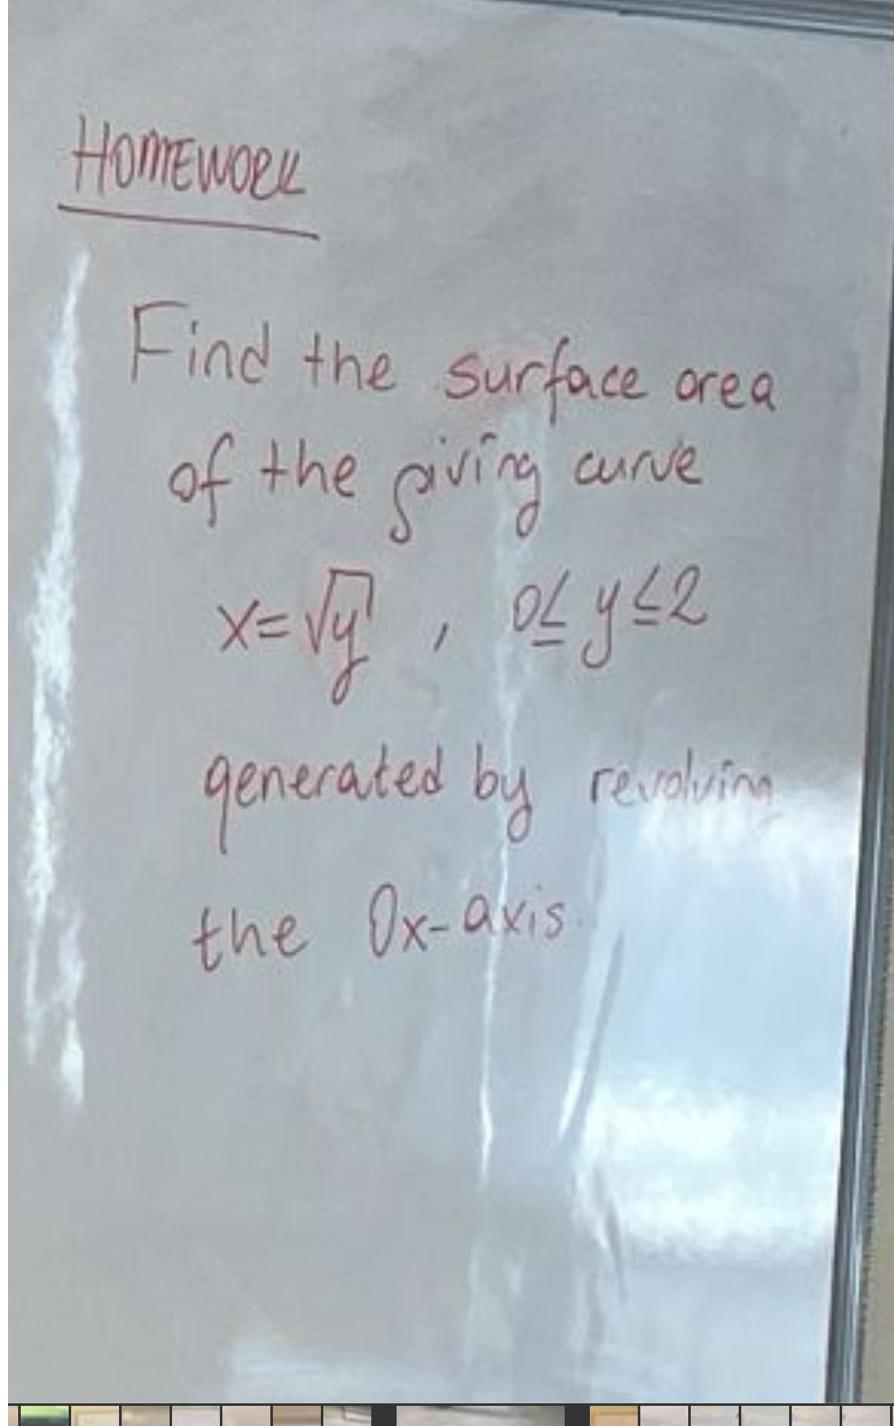 HOMEWORK
Find the surface area
of the giving curve
x=√y , 0≤ y ≤2
generated by revolving
the 0x-axis.